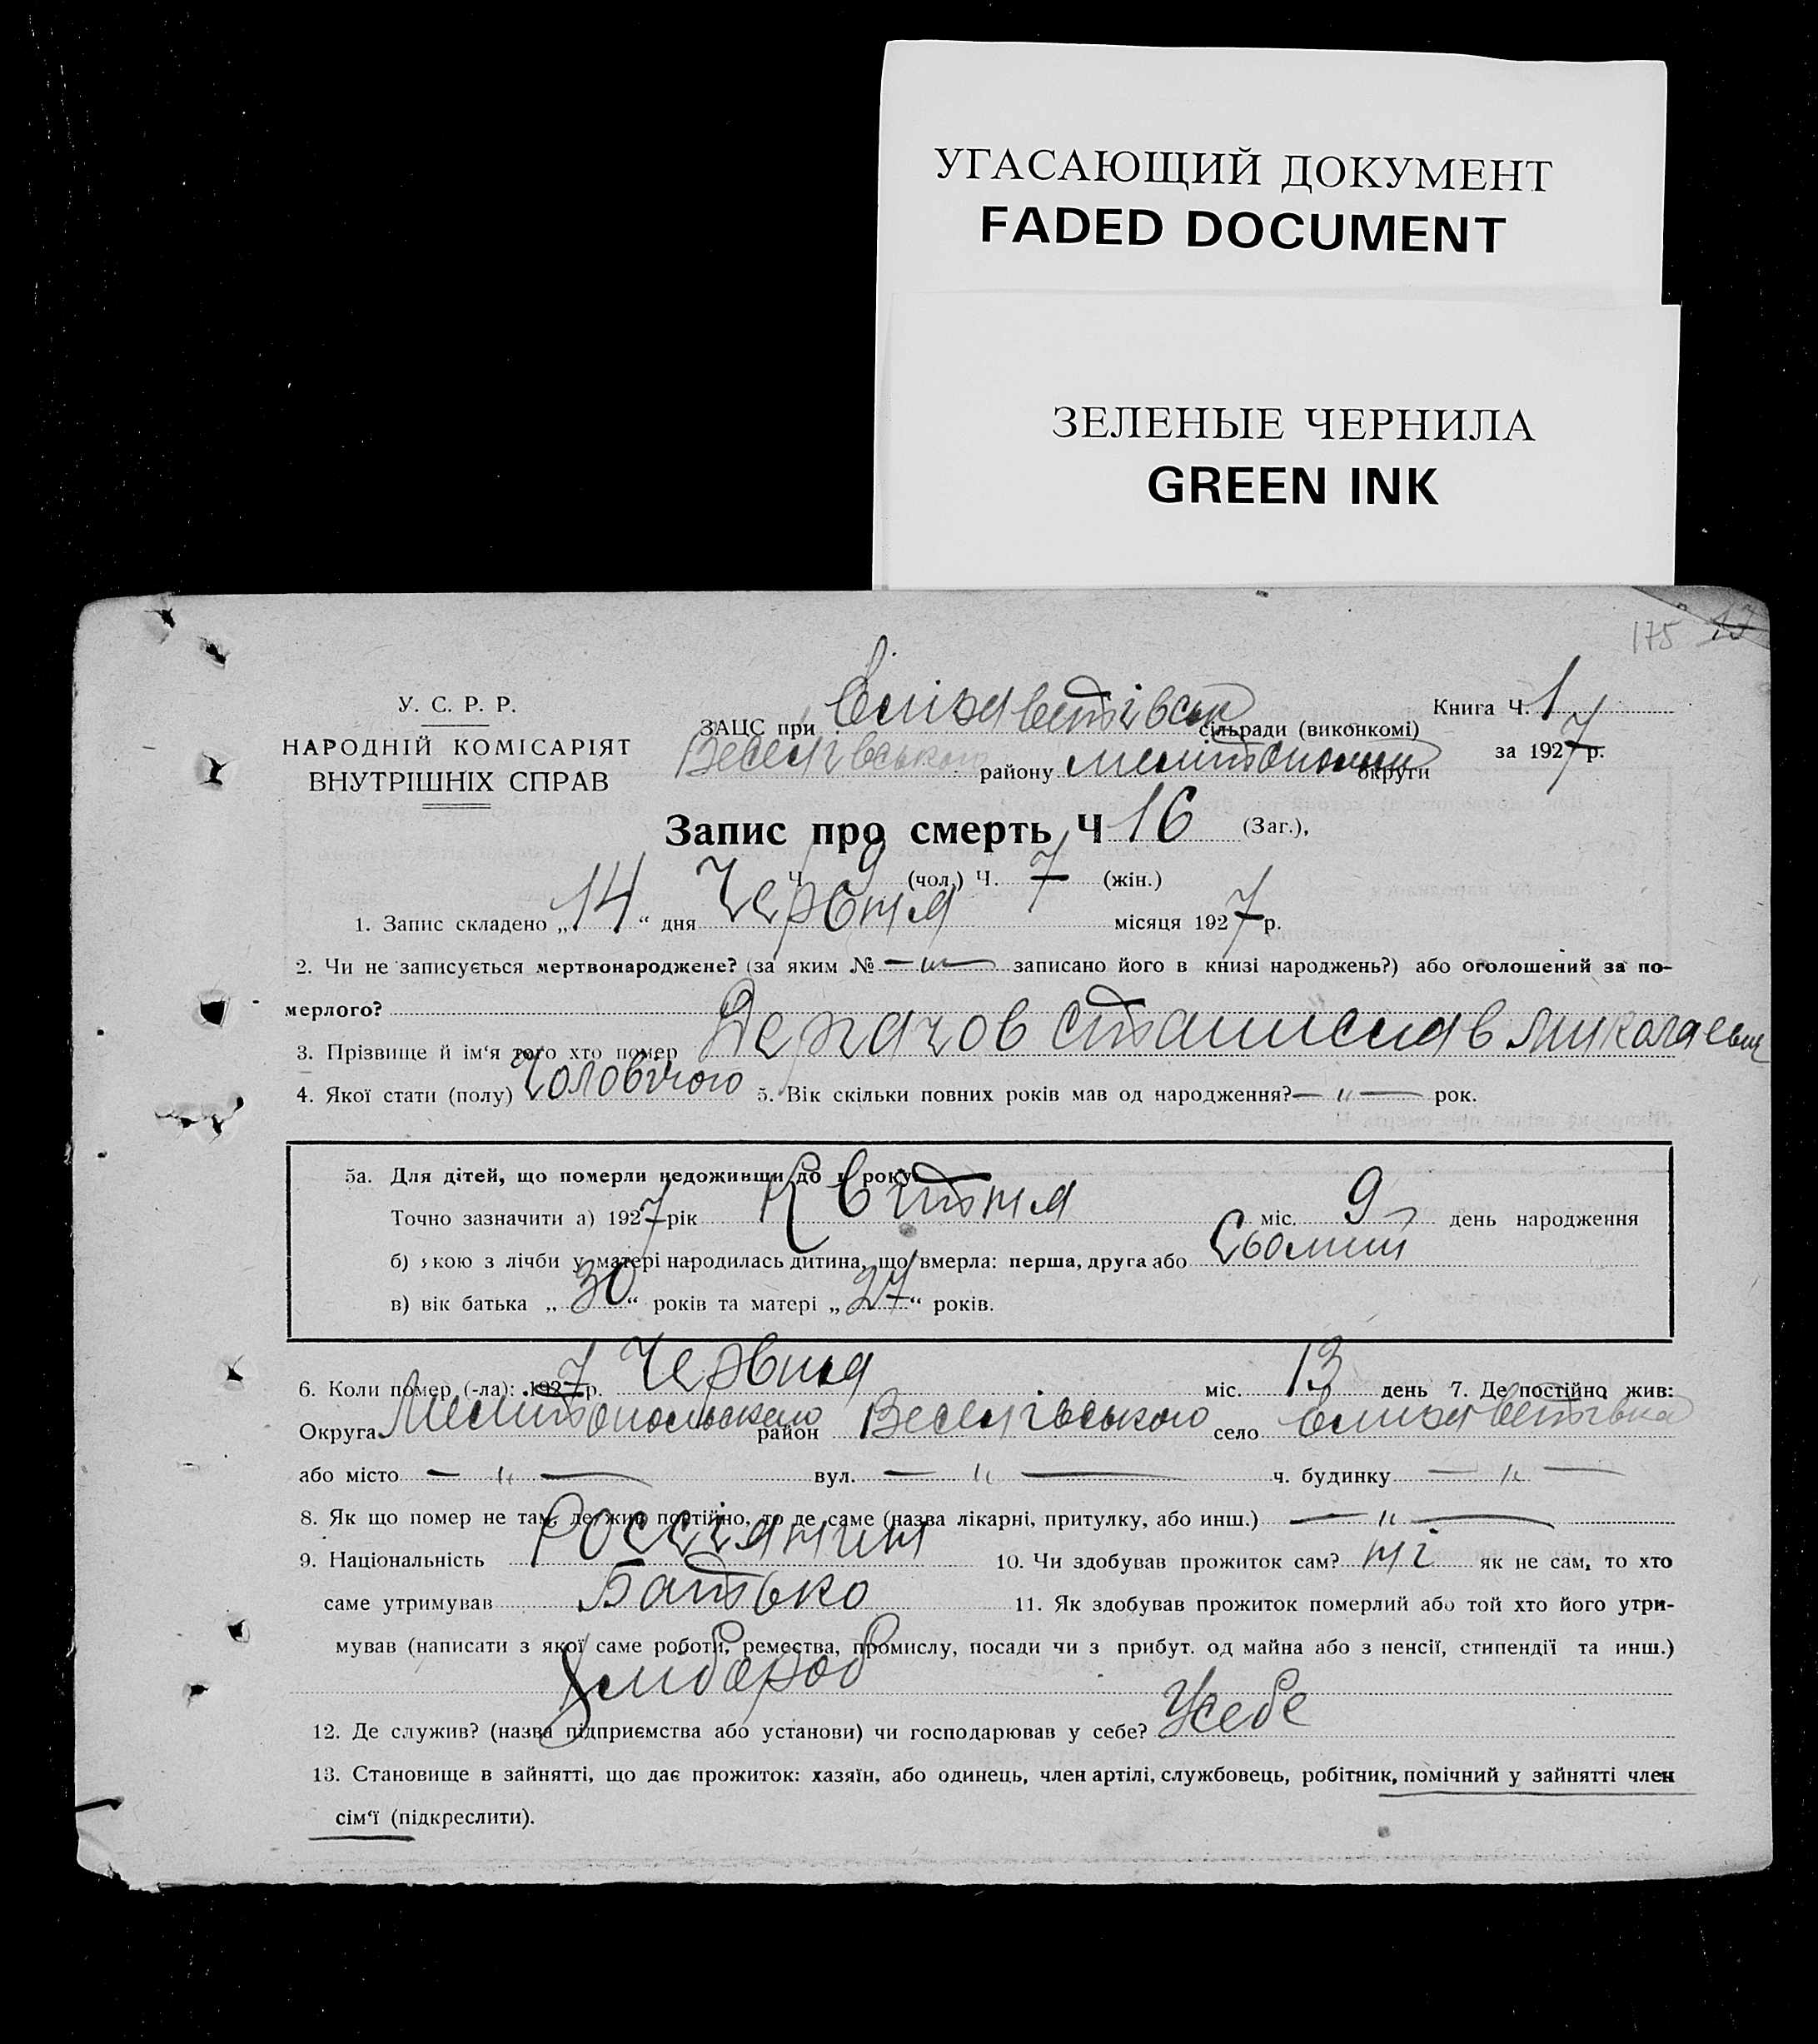 УГАСАЮЩИЙ ДОКУМЕНТ
FADED DOCUMENT
ЗЕЛЕНЫЕ ЧЕРНИЛА
GREEN INK
175 13
У. С. Р. Р.
НАРОДНІЙ КОМІСАРІЯТ
ВНУТРІШНІХ СПРАВ
ЗАЦС при Єлізаветівськ сільради (виконкомі)
Веселівського району Мелитополь округи
Книга Ч. 1
за 1927 р.
Запис про смерть Ч 16 (Заг.),
Ч 9 (чол.) Ч. 7 (жін.)
1. Запис складено „14“ дня Червня місяця 1927 р.
2. Чи не записується мертвонароджене? (за яким № — „ — записано його в книзі народжень?) або оголошений за по-
мерлого?
3. Прізвище й ім‘я того хто помер Дергачов Станислав Миколаевич
4. Якої стати (полу) Чоловічого 5. Вік скільки повних років мав од народження? — „ — рок.
5а. Для дітей, що померли недоживши до 1 року
Точно зазначити а) 1927 рік Квітня міс. 9 день народження
б) якою з лічби у матері народилась дитина, що вмерла: перша, друга або Сьомий
в) вік батька „30“ років та матері „27“ років.
6. Коли помер (-ла): 1927 р. Червня міс. 13 день 7. Де постійно жив:
Округа Мелитопольського район Веселівського село Єлизаветівка
або місто — „ — вул. — „ — ч. будинку — „ —
8. Як що помер не там, де жив постійно, то де саме (назва лікарні, притулку, або инш.) — „ —
9. Національність Россіянин 10. Чи здобував прожиток сам? ні як не сам, то хто
саме утримував Батько 11. Як здобував прожиток померлий або той хто його утри-
мував (написати з якої саме роботи, ремества, промислу, посади чи з прибут. од майна або з пенсії, стипендії та инш.)
Хлібороб
12. Де служив? (назва підприємства або установи) чи господарював у себе? У себе
13. Становище в зайнятті, що дає прожиток: хазяїн, або одинець, член артілі, службовець, робітник, помічний у зайнятті член
сім‘ї (підкреслити).